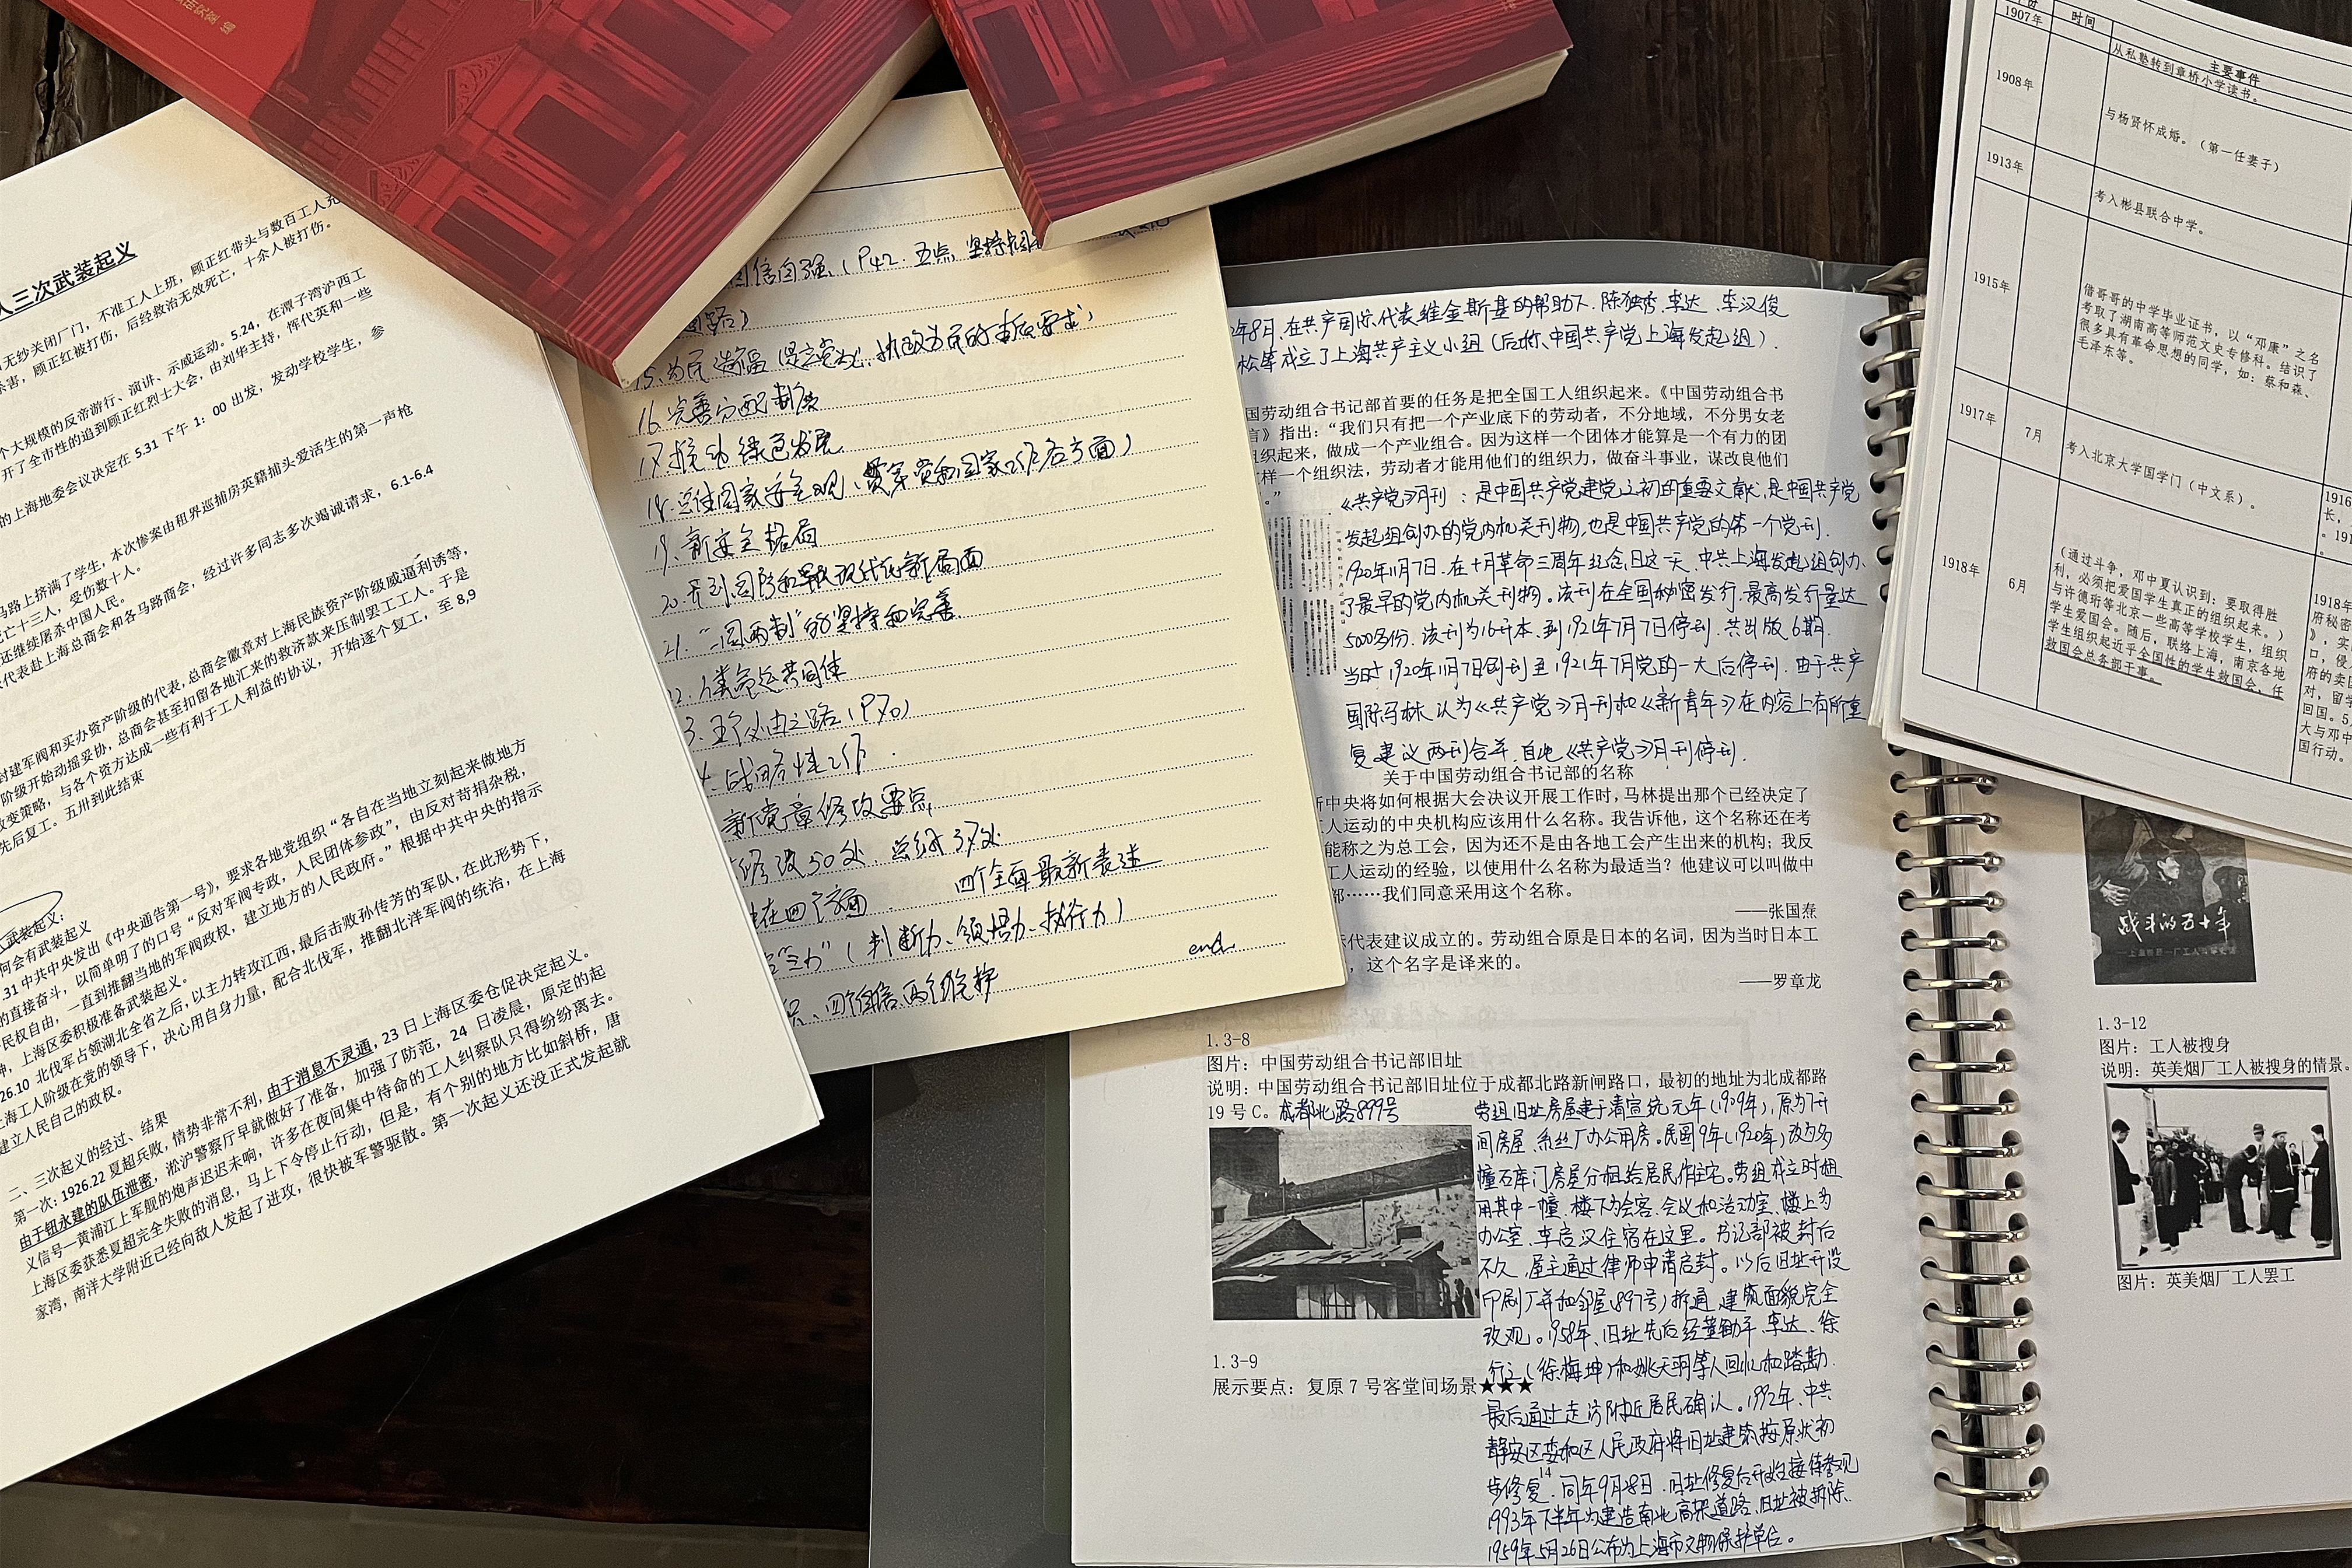 人三次武装起义
无纱关闭厂门，不准工人上班，顾正红带头与数百工人
杀害，顾正红被打伤，后经救治无效死亡，十余人被打伤。
个大规模的反帝游行、演讲、示威运动。5.24，在潭子湾沪西工
开了全市性的追到顾正红烈士大会，由刘华主持，恽代英和一些
的上海地委会议决定在 5.31 下午 1：00 出发，发动学校学生，参
马路上挤满了学生，本次惨案由租界巡捕房英籍捕头爱活生的第一声枪
死亡十三人，受伤数十人。
还继续屠杀中国人民。
代表赴上海总商会和各马路商会，经过许多同志多次竭诚请求，6.1-6.4
封建军阀和买办资产阶级的代表，总商会徽章对上海民族资产阶级威逼利诱等，
阶级开始动摇妥协，总商会甚至扣留各地汇来的救济款来压制罢工工人。于是
改变策略，与各个资方达成一些有利于工人利益的协议，开始逐个复工，至 8,9
先后复工。五卅到此结束
武装起义：
何会有武装起义
.31 中共中央发出《中央通告第一号》，要求各地党组织“各自在当地立刻起来做地方
的直接奋斗，以简单明了的口号“反对军阀专政，人民团体参政”，由反对苛捐杂税，
民权自由，一直到推翻当地的军阀政权，建立地方的人民政府。”根据中共中央的指示
，上海区委积极准备武装起义。
26.10 北伐军占领湖北全省之后，以主力转攻江西，最后击败孙传芳的军队，在此形势下，
上海工人阶级在党的领导下，决心用自身力量，配合北伐军，推翻北洋军阀的统治，在上海
建立人民自己的政权。
二、三次起义的经过、结果
第一次：1926.22 夏超兵败，情势非常不利，由于消息不灵通，23 日上海区委仓促决定起义。
由于钮永建的队伍泄密，淞沪警察厅早就做好了准备，加强了防范，24 日凌晨，原定的起
义信号一黄浦江上军舰的炮声迟迟未响，许多在夜间集中待命的工人纠察队只得纷纷离去。
上海区委获悉夏超完全失败的消息，马上下令停止行动，但是，有个别的地方比如斜桥，唐
家湾，南洋大学附近已经向敌人发起了进攻，很快被军警驱散。第一次起义还没正式发起就
自信自强（P42. 五点，坚持
道路）
15. 为民造福 是立党为公、执政为民的本质要求
16. 完善分配制度
17. 推动绿色发展
18. 总体国家安全观（贯穿党和国家工作各方面）
19. 新安全格局
20. 开创国防和军队现代化新局面
21. “一国两制”的坚持和完善
22. 人类命运共同体
3. 五个必由之路（P70）
4. 战略性工作
新党章修改要点
修改50处，总纲37处
在四个方面 四个全面最新表述
“三力”（判断力、领悟力、执行力）
四个自信、两个维护
end.
年8月，在共产国际代表维金斯基的帮助下，陈独秀、李达、李汉俊
松等成立了上海共产主义小组（后称、中国共产党上海发起组）.
国劳动组合书记部首要的任务是把全国工人组织起来。《中国劳动组合书
言》指出：“我们只有把一个产业底下的劳动者，不分地域，不分男女老
组织起来，做成一个产业组合。因为这样一个团体才能算是一个有力的团
样一个组织法，劳动者才能用他们的组织力，做奋斗事业，谋改良他们
。”
《共产党》月刊：是中国共产党建党之初的重要文献，是中国共产党
发起组创办的党内机关刊物，也是中国共产党的第一个党刊.
1920年11月7日，在十月革命三周年纪念日这一天，中共上海发起组创办
了最早的党内机关刊物。该刊在全国秘密发行，最高发行量达
5000多份。该刊为16开本，到1921年7月7日停刊，共出版6期.
当时1920年11月7日创刊至1921年7月党的一大后停刊，由于共产
国际马林认为《共产党》月刊和《新青年》在内容上有所重
复，建议两刊合并，自此《共产党》月刊停刊.
关于中国劳动组合书记部的名称
中央将如何根据大会决议开展工作时，马林提出那个已经决定了
工人运动的中央机构应该用什么名称。我告诉他，这个名称还在考
能称之为总工会，因为还不是由各地工会产生出来的机构；我反
工人运动的经验，以使用什么名称为最适当？他建议可以叫做中
部……我们同意采用这个名称。
——张国焘
代表建议成立的。劳动组合原是日本的名词，因为当时日本工
，这个名字是译来的。
——罗章龙
1.3-8
图片：中国劳动组合书记部旧址
说明：中国劳动组合书记部旧址位于成都北路新闸路口，最初的地址为北成都路
19 号 C。成都北路899号
劳组旧址房屋建于清宣统元年（1909年），原为7开
间房屋、系丝厂办公用房。民国9年（1920年）改为多
幢石库门房屋分租给居民作住宅。劳组成立时租
用其中一幢，楼下为会客、会议和活动室，楼上为
办公室，李启汉住宿在这里。书记部被封后
不久，屋主通过律师申请启封。以后旧址开设
印刷厂并和邻屋（897号）拆通，建筑面貌完全
改观。1958年，旧址先后经董锄平、李达、徐
行之（徐梅坤）和姚天羽等人回忆和踏勘.
最后通过走访附近居民确认。1992年，中共
静安区委和区人民政府将旧址建筑按原状初
步修复，同年9月28日，旧址修复后开始接待参观
1993年下半年为建造南北高架道路，旧址被拆除.
1959年5月26日公布为上海市文物保护单位。
1.3-9
展示要点：复原 7 号客堂间场景★★★
14
时间 主要事件
1907年 从私塾转到章桥小学读书。
1908年 与杨贤怀成婚。（第一任妻子）
1913年 考入彬县联合中学。
1915年 借哥哥的中学毕业证书，以“邓康”之名
考取了湖南高等师范文史专修科。结识了
很多具有革命思想的同学，如：蔡和森、
毛泽东等。
1917年 7月 考入北京大学国学门（中文系）。
1918年 6月 （通过斗争，邓中夏认识到：要取得胜
利，必须把爱国学生真正的组织起来。）
与许德珩等北京一些高等学校学生，组织
学生爱国会。随后，联络上海，南京各地
学生组织起近乎全国性的学生救国会，任
救国会总务部干事。
1916
长，
。191
1918年
府秘密
》，实
口，侵
府的卖国
对，留学
回国。5
大与邓中
国行动。
战斗的五十年
1.3-12
图片：工人被搜身
说明：英美烟厂工人被搜身的情景。
图片：英美烟厂工人罢工